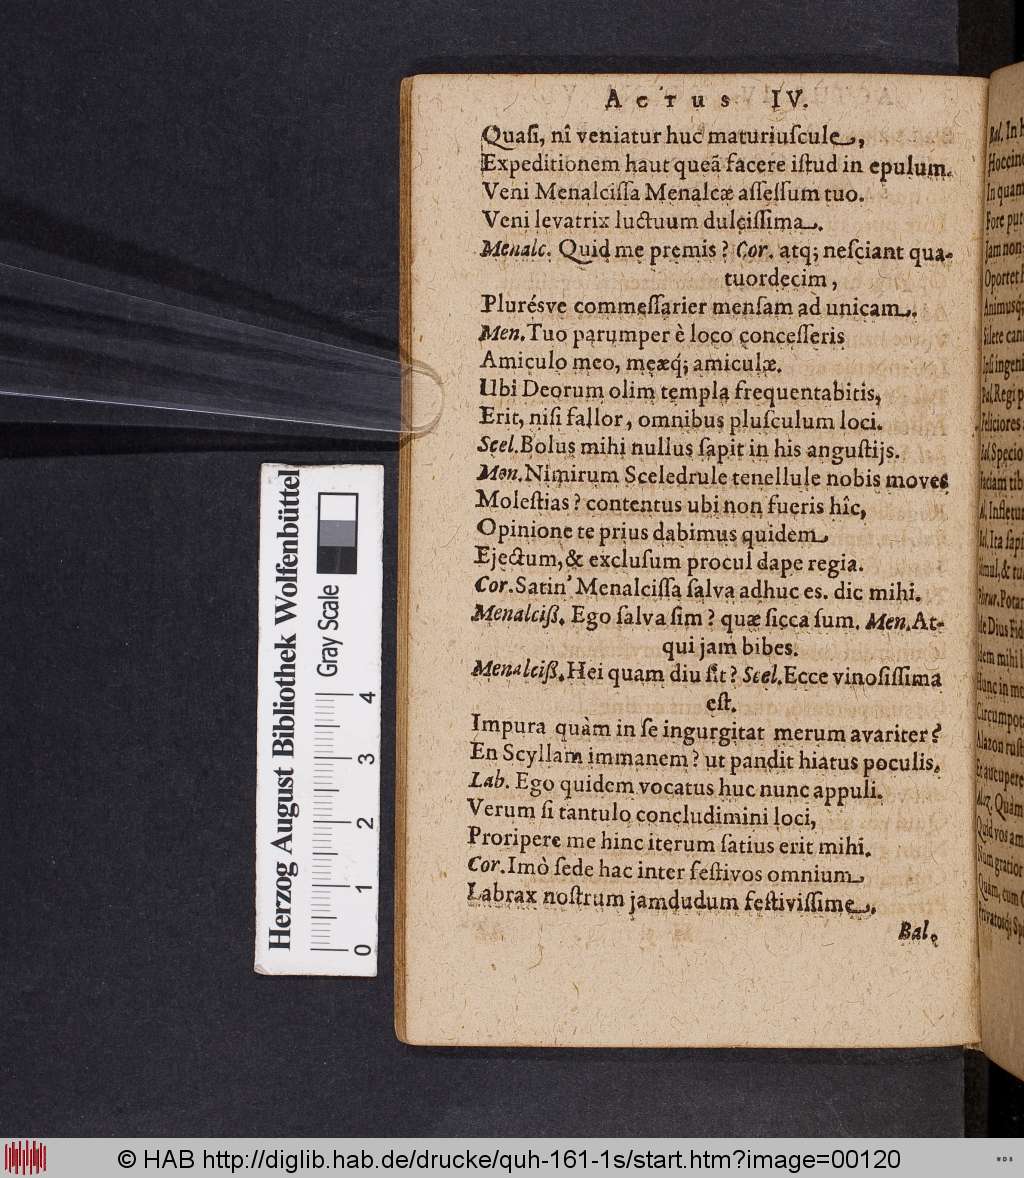 Actus IV.
Quaſi, nî veniatur huc maturiuſcule,
Expeditionem haut queã facere iſtud in epulum.
Veni Menalciſſa Menalcæ aſſeſſum tuo.
Veni levatrix luctuum dulciſſima.
Menalc. Quid me premis? Cor. atq; neſciant qua-
tuordecim,
Plurésve commeſſarier menſam ad unicam.
Men. Tuo parumper è loco conceſſeris
Amiculo meo, meæq́; amiculæ.
Ubi Deorum olim templa frequentabitis,
Erit, niſi fallor, omnibus pluſculum loci.
Scel. Bolus mihi nullus ſapit in his anguſtijs.
Men. Nimirum Sceledrule tenellule nobis moves
Moleſtias? contentus ubi non fueris hîc,
Opinione te prius dabimus quidem
Ejectum, & excluſum procul dape regia.
Cor. Satin' Menalciſſa ſalva adhuc es. dic mihi.
Menalciß. Ego ſalva ſim? quæ ſicca ſum. Men. At-
qui jam bibes.
Menalciß. Hei quam diu ſit? Scel. Ecce vinoſiſſima
eſt.
Impura quàm in ſe ingurgitat merum avariter?
En Scyllam immanem? ut pandit hiatus poculis.
Lab. Ego quidem vocatus huc nunc appuli.
Verum ſi tantulo concludimini loci,
Proripere me hinc iterum ſatius erit mihi.
Cor. Imò ſede hac inter feſtivos omnium
Labrax noſtrum jamdudum feſtiviſſime.
Bal.
Herzog August Bibliothek Wolfenbüttel
Gray Scale
0 1 2 3 4
© HAB http://diglib.hab.de/drucke/quh-161-1s/start.htm?image=00120